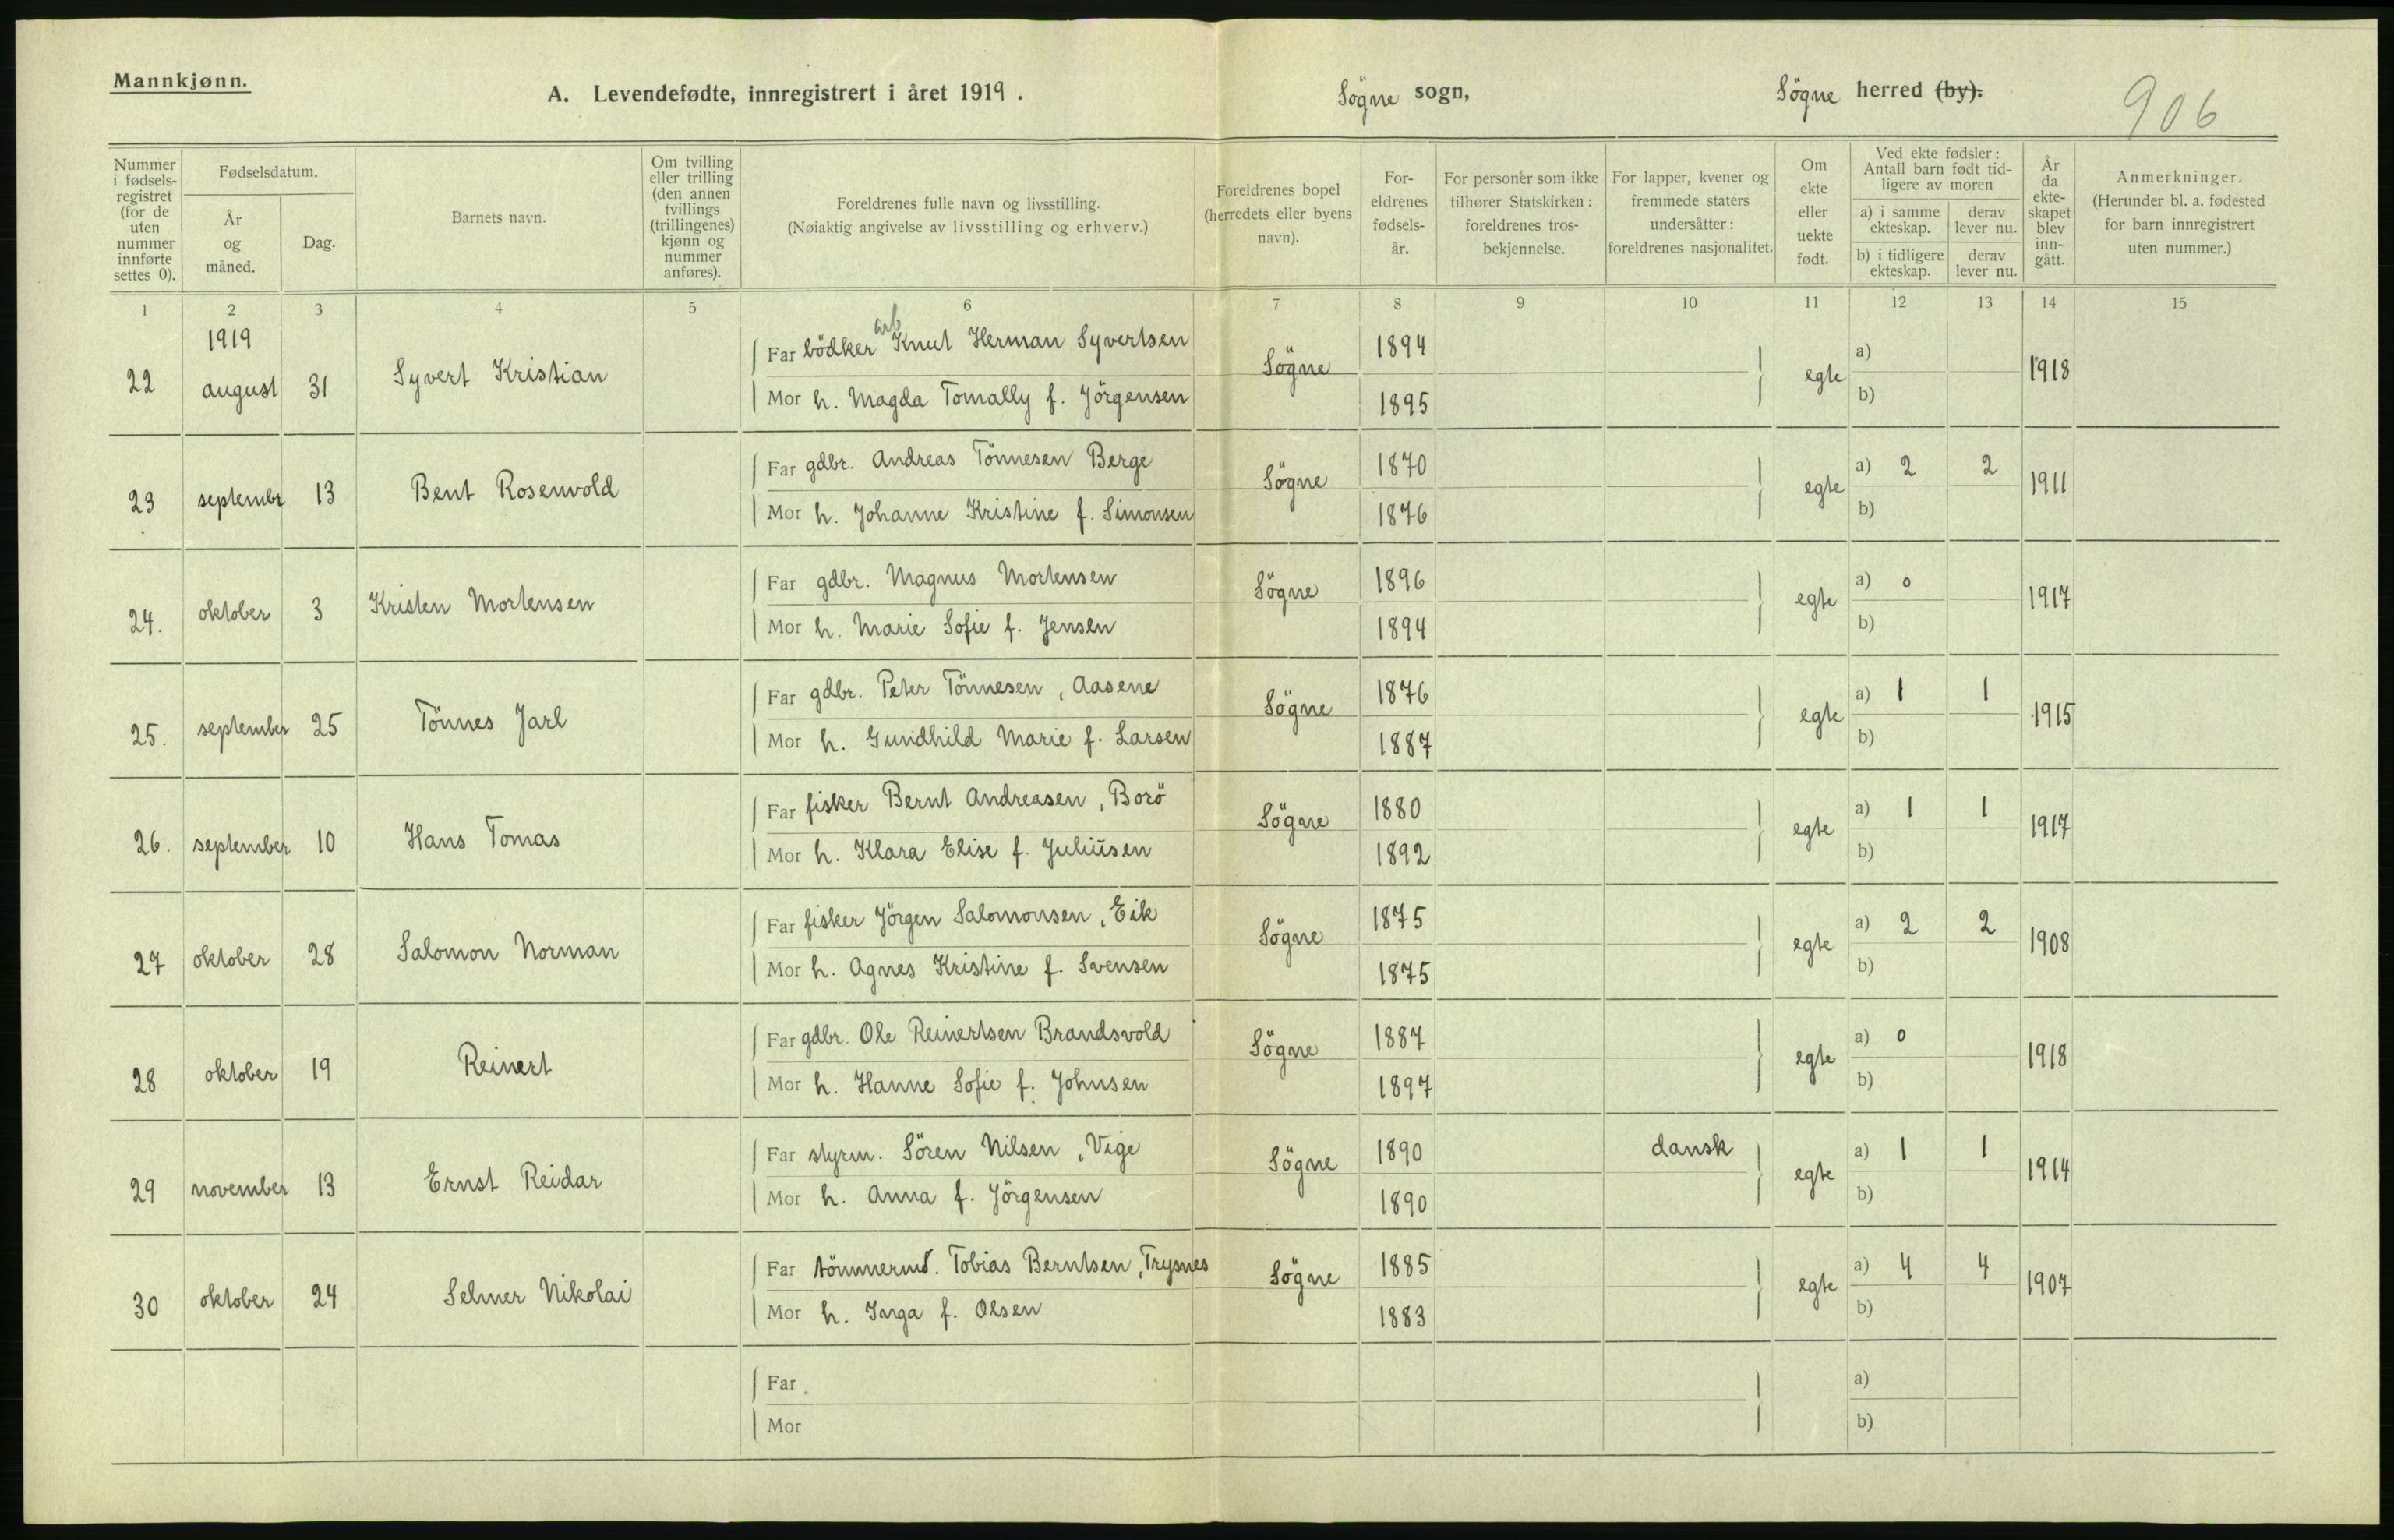 Mannkjønn.
A. Levendefødte, innregistrert i året 1919.
Sögne sogn,
Sögne herred (by).
906
Nummer i fødselsregistret (for de uten nummer innførte settes 0).
Fødselsdatum.
År og måned.
Dag.
Barnets navn.
Om tvilling eller trilling (den annen tvillings (trillingenes) kjønn og nummer anføres).
Foreldrenes fulle navn og livsstilling.
(Nøiaktig angivelse av livsstilling og erhverv.)
Foreldrenes bopel (herredets eller byens navn).
Foreldrenes fødselsår.
For personer som ikke tilhører Statskirken: foreldrenes trosbekjennelse.
For lapper, kvener og fremmede staters undersåtter: foreldrenes nasjonalitet.
Om ekte eller uekte født.
Ved ekte fødsler: Antall barn født tidligere av moren
a) i samme ekteskap.
derav lever nu.
b) i tidligere ekteskap.
derav lever nu.
År da ekteskapet blev inngått.
Anmerkninger.
(Herunder bl. a. fødested for barn innregistrert uten nummer.)
1 2 3 4 5 6 7 8 9 10 11 12 13 14 15
1919
22 august 31 Syvert Kristian Far bödker arb Knut Herman Syvertsen Sögne 1894 egte a) 1918
Mor h. Magda Tomally f. Jörgensen 1895 b)
23 septembr 13 Bent Rosenvold Far gdbr. Andreas Tönnesen Berge Sögne 1870 egte a) 2 2 1911
Mor h. Johanne Kristine f. Simonsen 1876 b)
24. oktober 3 Kristen Mortensen Far gdbr. Magnus Mortensen Sögne 1896 egte a) 0 1917
Mor h. Marie Sofie f. Jensen 1894 b)
25. september 25 Tönnes Jarl Far gdbr. Peter Tönnesen, Aasene Sögne 1876 egte a) 1 1 1915
Mor h. Gundhild Marie f. Larsen 1887 b)
26. september 10 Hans Tomas Far fisker Bernt Andreasen, Borö Sögne 1880 egte a) 1 1 1917
Mor h. Klara Elise f. Juliusen 1892 b)
27 oktober 28 Salomon Norman Far fisker Jörgen Salomonsen, Eik Sögne 1875 egte a) 2 2 1908
Mor h. Agnes Kristine f. Svensen 1875 b)
28 oktober 19 Reinert Far gdbr. Ole Reinertsen Brandsvold Sögne 1887 egte a) 0 1918
Mor h. Hanne Sofie f. Johnsen 1897 b)
29 november 13 Ernst Reidar Far styrm. Sören Nilsen, Vige Sögne 1890 dansk egte a) 1 1 1914
Mor h. Anna f. Jörgensen 1890 b)
30 oktober 24 Selmer Nikolai Far tömmermd. Tobias Berntsen, Trysnes Sögne 1885 egte a) 4 4 1907
Mor h. Inga f. Olsen 1883 b)
Far a)
Mor b)